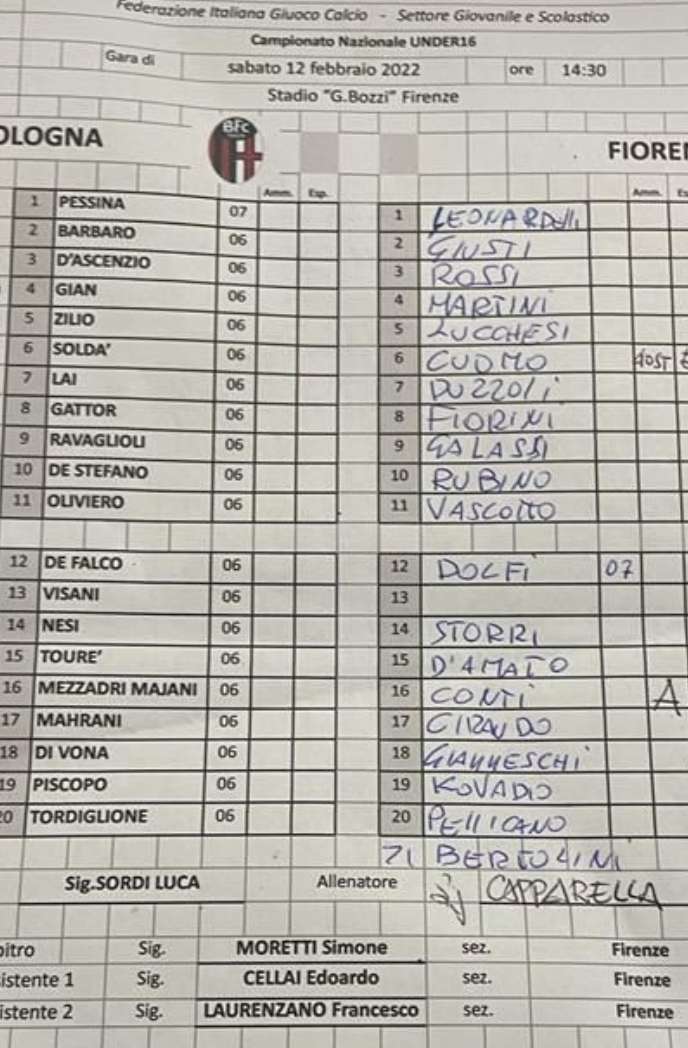 Federazione Italiana Giuoco Calcio - Settore Giovanile e Scolastico
Campionato Nazionale UNDER16
Gara di sabato 12 febbraio 2022 ore 14:30
Stadio "G.Bozzi" Firenze
OLOGNA BFC FIORE
Amm. Esp. Amm. Es
1 PESSINA 07 1 LEONARDELLI
2 BARBARO 06 2 GIUSTI
3 D'ASCENZIO 06 3 ROSSI
4 GIAN 06 4 MARTINI
5 ZILIO 06 5 LUCCHESI
6 SOLDA' 06 6 CUOMO
7 LAI 06 7 PUZZOLI
8 GATTOR 06 8 FIORINI
9 RAVAGLIOLI 06 9 GALASSI
10 DE STEFANO 06 10 RUBINO
11 OLIVIERO 06 11 VASCOTTO
12 DE FALCO 06 12 DOLFI 07
13 VISANI 06 13
14 NESI 06 14 STORRI
15 TOURE' 06 15 D'AMATO
16 MEZZADRI MAJANI 06 16 CONTI A
17 MAHRANI 06 17
18 DI VONA 06 18 GIANNESCHI
19 PISCOPO 06 19 KOVADIO
20 TORDIGLIONE 06 20 PELLICANO
21 BERTOLINI
Sig.SORDI LUCA Allenatore CAPPARELLA
bitro Sig. MORETTI Simone sez. Firenze
istente 1 Sig. CELLAI Edoardo sez. Firenze
istente 2 Sig. LAURENZANO Francesco sez. Firenze